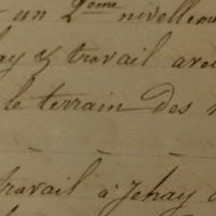 un 2ème nivelleme
ay & travail avec
le terrain des
travail à Jehay